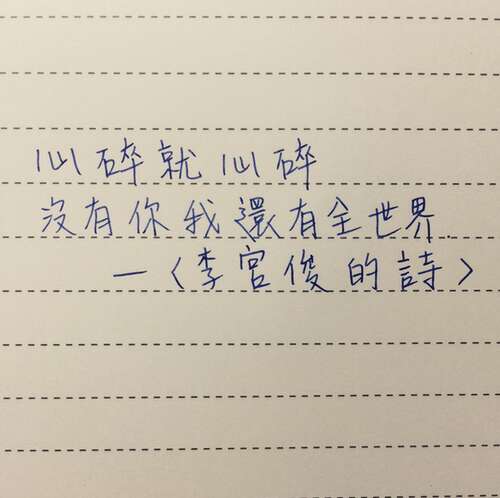 心碎就心碎
沒有你我還有全世界.
—〈李宮俊的詩〉